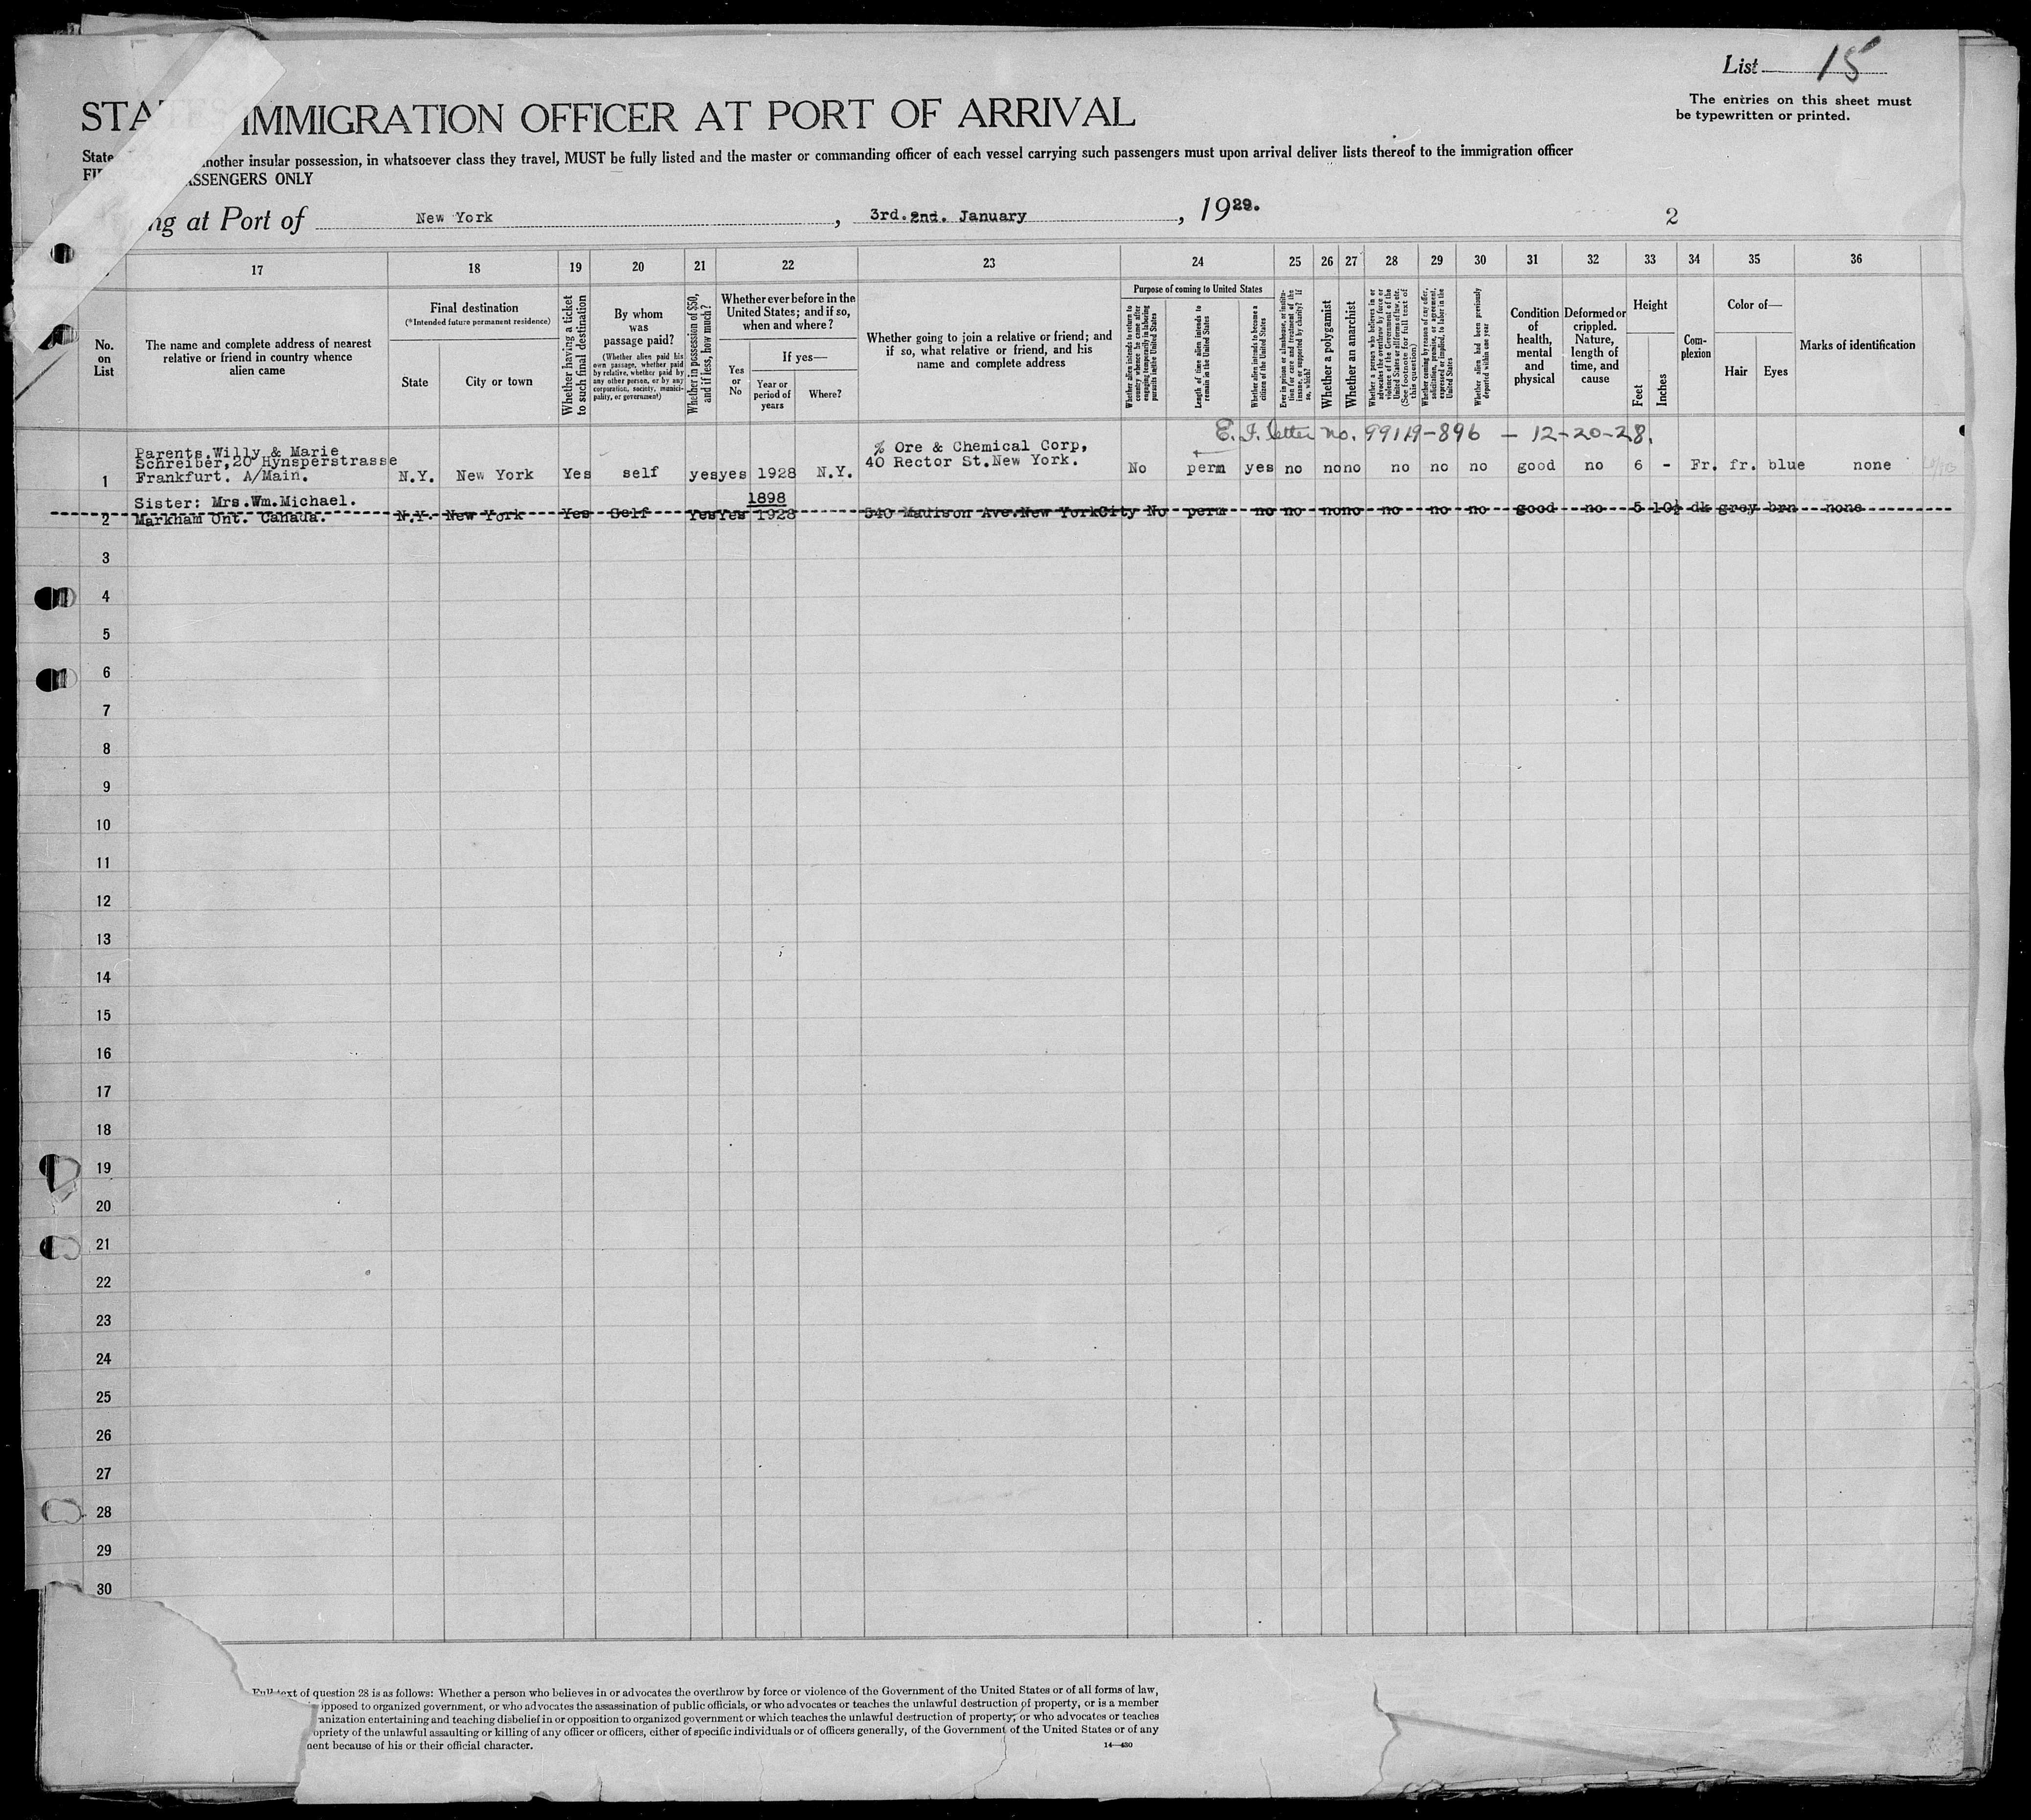 List 15
The entries on this sheet must
be typewritten or printed.
STATES IMMIGRATION OFFICER AT PORT OF ARRIVAL
State another insular possession, in whatsoever class they travel, MUST be fully listed and the master or commanding officer of each vessel carrying such passengers must upon arrival deliver lists thereof to the immigration officer
PASSENGERS ONLY
ng at Port of New York , 3rd. 2nd. January , 1929.
2
17 18 19 20 21 22 23 24 25 26 27 28 29 30 31 32 33 34 35 36
No.
on
List
The name and complete address of nearest
relative or friend in country whence
alien came
Final destination
(*Intended future permanent residence)
State
City or town
Whether having a ticket
to such final destination
By whom
was
passage paid?
(Whether alien paid his
own passage, whether paid
by relative, whether paid by
any other person, or by any
corporation, society, munici-
pality, or government)
Whether in possession of $50,
and if less, how much?
Whether ever before in the
United States; and if so,
when and where?
Yes
or
No
If yes—
Year or
period of
years
Where?
Whether going to join a relative or friend; and
if so, what relative or friend, and his
name and complete address
Purpose of coming to United States
Whether alien intends to return to
country whence he came after
engaging temporarily in laboring
pursuits in the United States
Length of time alien intends to
remain in the United States
Whether alien intends to become a
citizen of the United States
Ever in prison or almshouse, or institu-
tion for care and treatment of the
insane, or supported by charity? If
so, which?
Whether a polygamist
Whether an anarchist
Whether a person who believes in or
advocates the overthrow by force or
violence of the Government of the
United States or all forms of law, etc.
(See footnote for full text of
this question)
Whether coming by reason of any offer,
solicitation, promise, or agreement,
expressed or implied, to labor in the
United States
Whether alien had been previously
deported within one year
Condition
of
health,
mental
and
physical
Deformed or
crippled.
Nature,
length of
time, and
cause
Height
Feet
Inches
Com-
plexion
Color of—
Hair
Eyes
Marks of identification
E. I. letter no. 99119-896 - 12-20-28.
Parents.Willy & Marie
Schreiber,20 Hynsperstrasse
Frankfurt. A/Main.
% Ore & Chemical Corp,
40 Rector St.New York.
1 N.Y. New York Yes self yes yes 1928 N.Y. No perm yes no no no no no no good no 6 - Fr. fr. blue none
Sister: Mrs.Wm.Michael. 1898
2 Markham Ont. Canada. N.Y. New York Yes Self Yes Yes 1928 540 Madison Ave.New YorkCity No perm no no no no no no no good no 5 10½ dk grey brn none
3
4
5
6
7
8
9
10
11
12
13
14
15
16
17
18
19
20
21
22
23
24
25
26
27
28
29
30
Full text of question 28 is as follows: Whether a person who believes in or advocates the overthrow by force or violence of the Government of the United States or of all forms of law,
opposed to organized government, or who advocates the assassination of public officials, or who advocates or teaches the unlawful destruction of property, or is a member
anization entertaining and teaching disbelief in or opposition to organized government or which teaches the unlawful destruction of property, or who advocates or teaches
opriety of the unlawful assaulting or killing of any officer or officers, either of specific individuals or of officers generally, of the Government of the United States or of any
ment because of his or their official character.
14—430